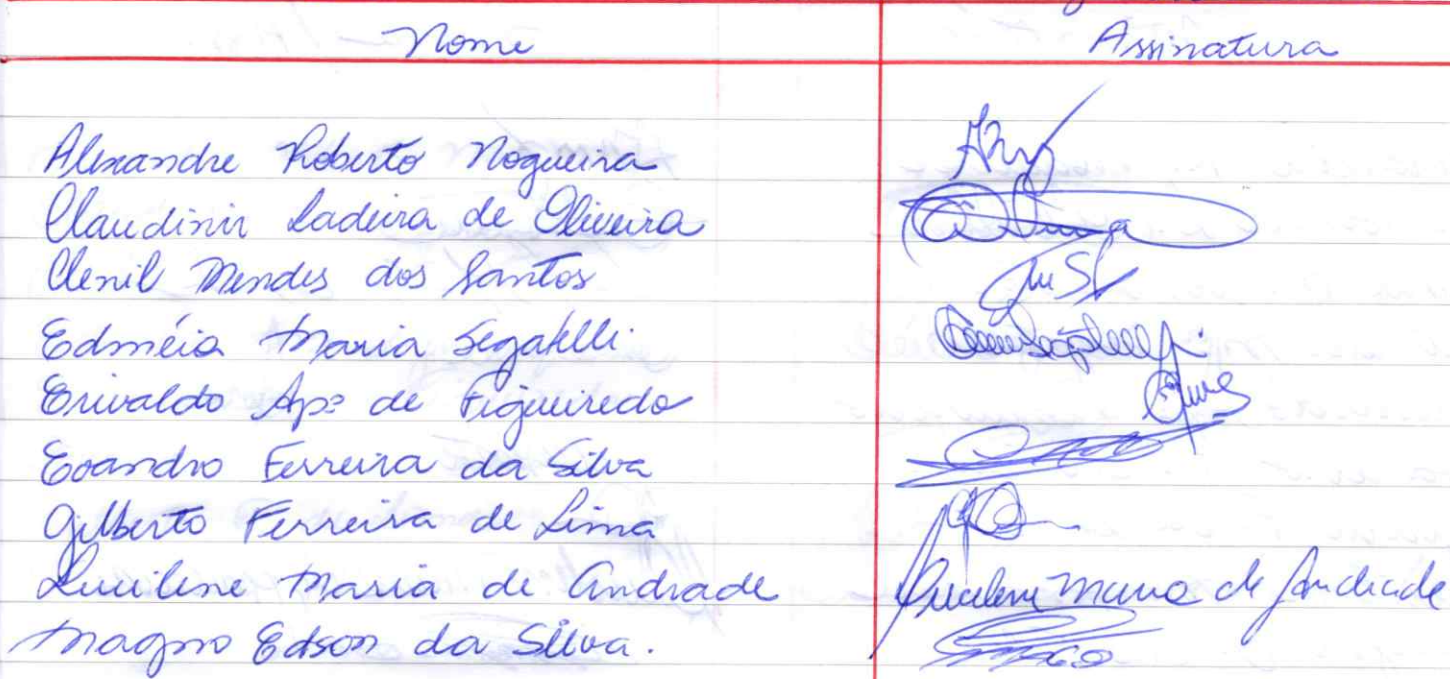 Nome Assinatura
Alexandre Roberto Nogueira
Claudinir Ladeira de Oliveira
Clenil Mendes dos Santos
Edméia Maria Segatelli
Erivaldo Apº de Figueiredo
Evandro Ferreira da Silva
Gilberto Ferreira de Lima
Lucilene Maria de Andrade Lucilene Maria de Andrade
Magno Edson da Silva.